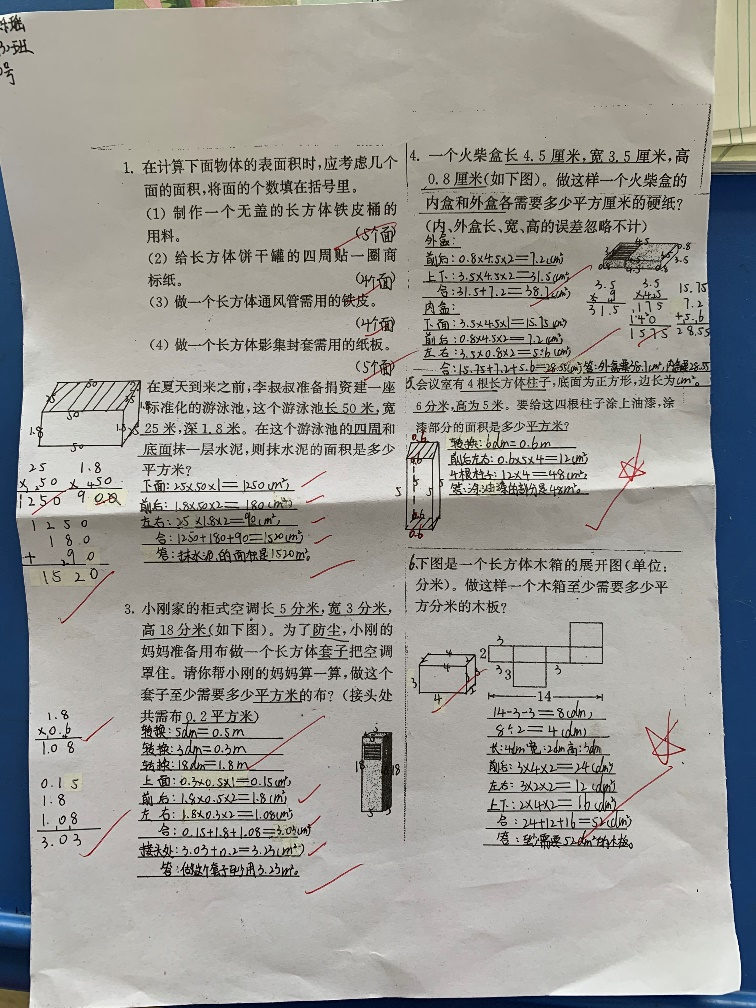 3.班
号
1. 在计算下面物体的表面积时，应考虑几个
面的面积，将面的个数填在括号里。
(1) 制作一个无盖的长方体铁皮桶的
用料。 (5个面)
(2) 给长方体饼干罐的四周贴一圈商
标纸。 (4个面)
(3) 做一个长方体通风管需用的铁皮。
(4个面)
(4) 做一个长方体影集封套需用的纸板。
(5个面)
在夏天到来之前，李叔叔准备捐资建一座
标准化的游泳池，这个游泳池长 50 米，宽
25 米，深 1.8 米。在这个游泳池的四周和
底面抹一层水泥，则抹水泥的面积是多少
平方米？
下面：25×50×1＝1250(m²)
前后：1.8×50×2＝180(m²)
左右：25×1.8×2＝90(m²)
合：1250+180+90＝1520(m²)
答：抹水泥的面积是1520m²。
50
50
1.8
25
×50
1250
1.8
×50
1250
180
+ 90
1520
3. 小刚家的柜式空调长 5 分米，宽 3 分米，
高 18 分米(如下图)。为了防尘，小刚的
妈妈准备用布做一个长方体套子把空调
罩住。请你帮小刚的妈妈算一算，做这个
套子至少需要多少平方米的布？(接头处
共需布 0.2 平方米)
转换：5dm＝0.5m
转换：3dm＝0.3m
转换：18dm＝1.8m
上面：0.3×0.5×1＝0.15(m²)
前后：1.8×0.5×2＝1.8(m²)
左右：1.8×0.3×2＝1.08(m²)
合：0.15+1.8+1.08＝3.03(m²)
接头处：3.03+0.2＝3.23(m²)
答：做这个套子至少用3.23m²。
1.8
×0.6
1.08
0.15
1.8
1.08
3.03
18
18
4. 一个火柴盒长 4.5 厘米，宽 3.5 厘米，高
0.8 厘米(如下图)。做这样一个火柴盒的
内盒和外盒各需要多少平方厘米的硬纸？
(内、外盒长、宽、高的误差忽略不计)
外盒：
前后：0.8×4.5×2＝7.2(cm²)
上下：3.5×4.5×2＝31.5(cm²)
合：31.5+7.2＝38.7(cm²)
内盒：
下面：3.5×4.5×1＝15.75(cm²)
前后：0.8×4.5×2＝7.2(cm²)
左右：3.5×0.8×2＝5.6(cm²)
合：15.75+7.2+5.6＝28.55(cm²) 答：外盒需要38.7cm²，内盒需28.55
cm²。
4.5
0.8
3.5
3.5
× 9
31.5
3.5
×4.5
175
140
1575
15.75
7.2
+5.6
28.55
5.会议室有 4 根长方体柱子，底面为正方形，边长为
6 分米，高为 5 米。要给这四根柱子涂上油漆，涂
漆部分的面积是多少平方米？
转换：6dm＝0.6m
前后左右：0.6×5×4＝12(m²)
4根柱子：12×4＝48(m²)
答：涂油漆的部分是48m²。
0.6
0.6
5
5
0.6
0.6
6.下图是一个长方体木箱的展开图(单位：
分米)。做这样一个木箱至少需要多少平
方分米的木板？
4
4
3
4
3
2
3
3
3
14
14-3-3＝8(dm)
8÷2＝4(dm)
长：4dm 宽：2dm 高：3dm
前后：3×4×2＝24(dm²)
左右：3×2×2＝12(dm²)
上下：2×4×2＝16(dm²)
合：24+12+16＝52(dm²)
答：至少需要52dm²的木板。